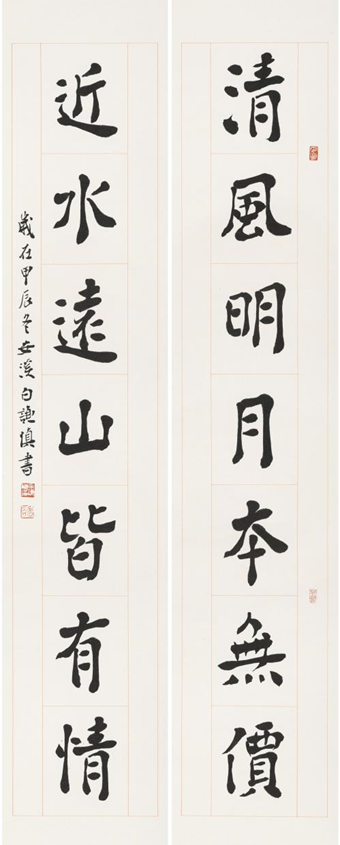 清風明月本無價
近水遠山皆有情
歲在甲辰冬安溪白謙慎書